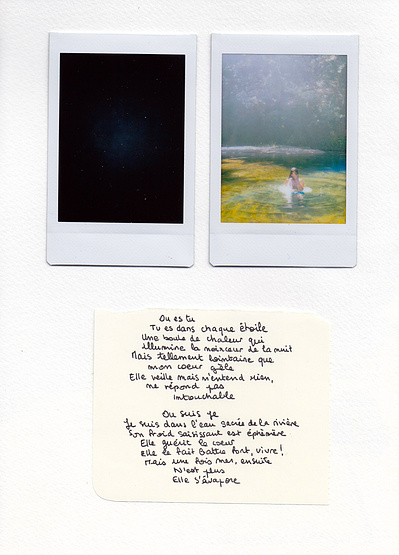 Où es tu
Tu es dans chaque étoile
Une boule de chaleur qui
illumine la noirceur de la nuit
Mais tellement lointaine que
mon cœur gèle
Elle veille mais n'entend rien,
ne répond pas
Intouchable
Où suis je
Je suis dans l'eau sacrée de la rivière
Son froid saisissant est éphémère
Elle guérit le cœur
Elle le fait battre fort, vivre!
Mais une fois, ensuite
N'est plus
Elle s'évapore